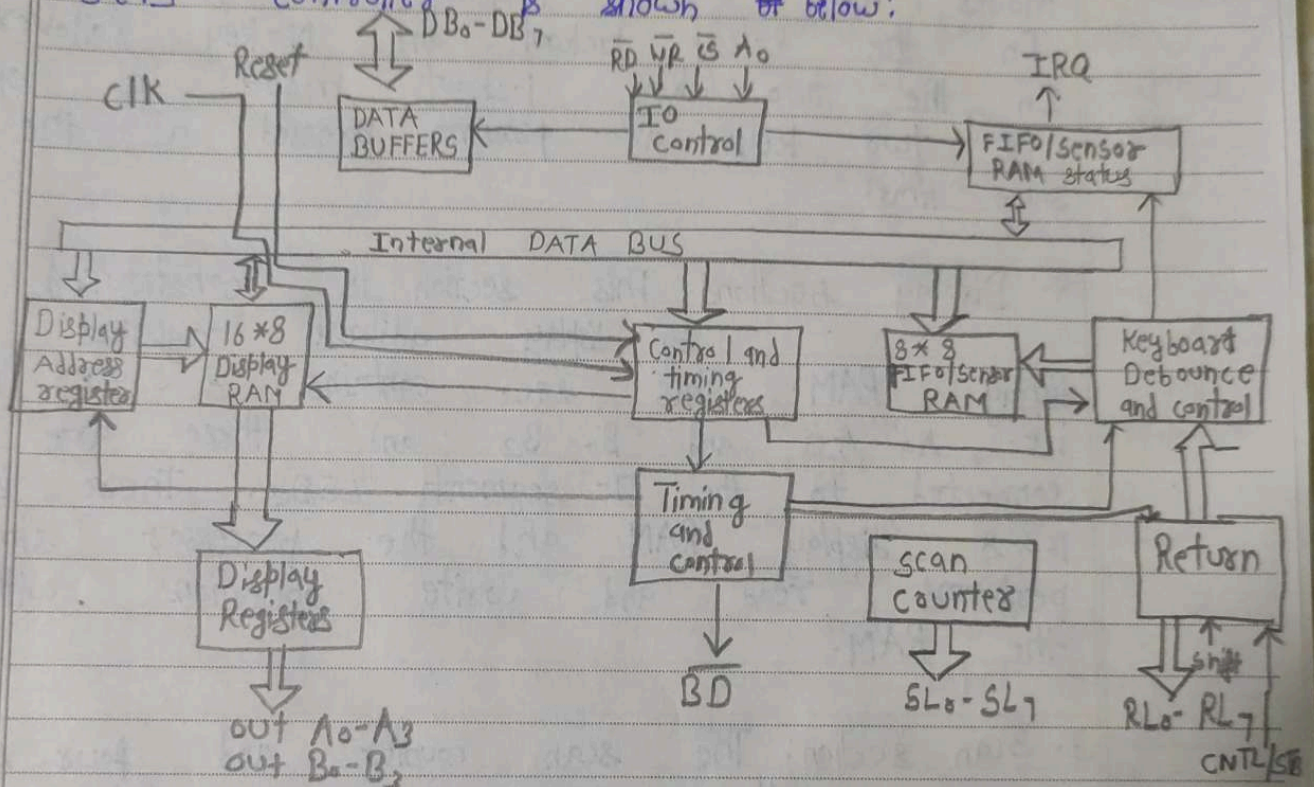 shown of below:
DB0-DB7
Reset
RD WR CS A0
IRQ
Clk
DATA
BUFFERS
IO
Control
FIFO/Sensor
RAM status
Internal DATA BUS
Display
Address
register
16*8
Display
RAM
Control and
timing
registers
8*8
FIFO/Sensor
RAM
Keyboard
Debounce
and control
Timing
and
control
scan
counter
Return
Display
Registers
BD
SL0-SL7
shift
RL0-RL7
CNTL/SB
out A0-A3
out B0-B3